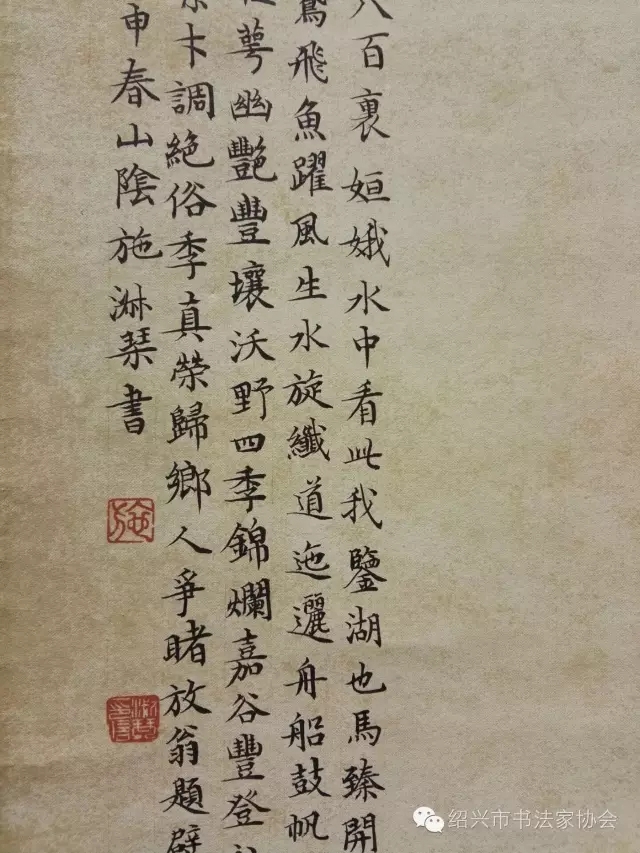 八百裏姮娥水中看此我鑒湖也馬臻開
鳶飛魚躍風生水旋纖道迤邐舟船鼓帆
萼幽艷豐壤沃野四季錦爛嘉谷豐登
卞調絕俗季真榮歸鄉人爭睹放翁題壁
申春山陰施淋琹書
施
绍兴市书法家协会